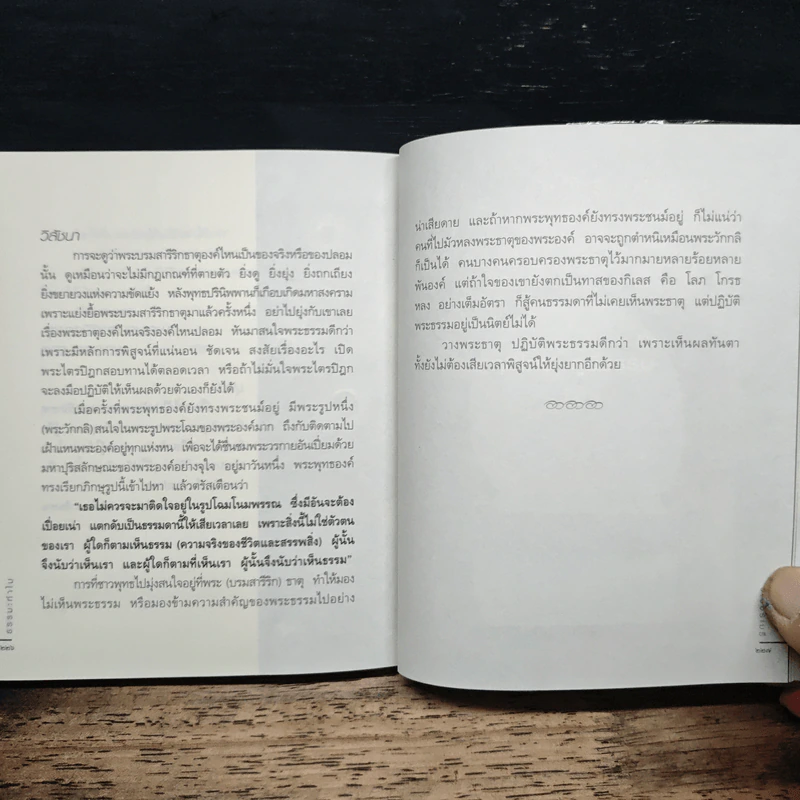 วิสัชนา
การจะดูว่าพระบรมสารีริกธาตุองค์ไหนเป็นของจริงหรือของปลอม
นั้น ดูเหมือนว่าจะไม่มีกฎเกณฑ์ที่ตายตัว ยิ่งดู ยิ่งยุ่ง ยิ่งถกเถียง
ยิ่งขยายวงแห่งความขัดแย้ง หลังพุทธปรินิพพานก็เกือบเกิดมหาสงคราม
เพราะแย่งยื้อพระบรมสารีริกธาตุมาแล้วครั้งหนึ่ง อย่าไปยุ่งกับเขาเลย
เรื่องพระธาตุองค์ไหนจริงองค์ไหนปลอม หันมาสนใจพระธรรมดีกว่า
เพราะมีหลักการพิสูจน์ที่แน่นอน ชัดเจน สงสัยเรื่องอะไร เปิด
พระไตรปิฎกสอบทานได้ตลอดเวลา หรือถ้าไม่มั่นใจพระไตรปิฎก
จะลงมือปฏิบัติให้เห็นผลด้วยตัวเองก็ยังได้
เมื่อครั้งที่พระพุทธองค์ยังทรงพระชนม์อยู่ มีพระรูปหนึ่ง
(พระวักกลิ) สนใจในพระรูปพระโฉมของพระองค์มาก ถึงกับติดตามไป
เฝ้าแหนพระองค์อยู่ทุกแห่งหน เพื่อจะได้ชื่นชมพระวรกายอันเปี่ยมด้วย
มหาบุริสลักษณะของพระองค์อย่างจุใจ อยู่มาวันหนึ่ง พระพุทธองค์
ทรงเรียกภิกษุรูปนี้เข้าไปหา แล้วตรัสเตือนว่า
“เธอไม่ควรจะมาติดใจอยู่ในรูปโฉมโนมพรรณ ซึ่งมีอันจะต้อง
เปื่อยเน่า แตกดับเป็นธรรมดานี้ให้เสียเวลาเลย เพราะสิ่งนี้ไม่ใช่ตัวตน
ของเรา ผู้ใดก็ตามเห็นธรรม (ความจริงของชีวิตและสรรพสิ่ง) ผู้นั้น
จึงนับว่าเห็นเรา และผู้ใดก็ตามที่เห็นเรา ผู้นั้นจึงนับว่าเห็นธรรม”
การที่ชาวพุทธไปมุ่งสนใจอยู่ที่พระ (บรมสารีริก) ธาตุ ทำให้มอง
ไม่เห็นพระธรรม หรือมองข้ามความสำคัญของพระธรรมไปอย่าง
ธรรมะทำไม
๒๒๖
น่าเสียดาย และถ้าหากพระพุทธองค์ยังทรงพระชนม์อยู่ ก็ไม่แน่ว่า
คนที่ไปมัวหลงพระธาตุของพระองค์ อาจจะถูกตำหนิเหมือนพระวักกลิ
ก็เป็นได้ คนบางคนครอบครองพระธาตุไว้มากมายหลายร้อยหลาย
พันองค์ แต่ถ้าใจของเขายังตกเป็นทาสของกิเลส คือ โลภ โกรธ
หลง อย่างเต็มอัตรา ก็สู้คนธรรมดาที่ไม่เคยเห็นพระธาตุ แต่ปฏิบัติ
พระธรรมอยู่เป็นนิตย์ไม่ได้
วางพระธาตุ ปฏิบัติพระธรรมดีกว่า เพราะเห็นผลทันตา
ทั้งยังไม่ต้องเสียเวลาพิสูจน์ให้ยุ่งยากอีกด้วย
๒๒๗